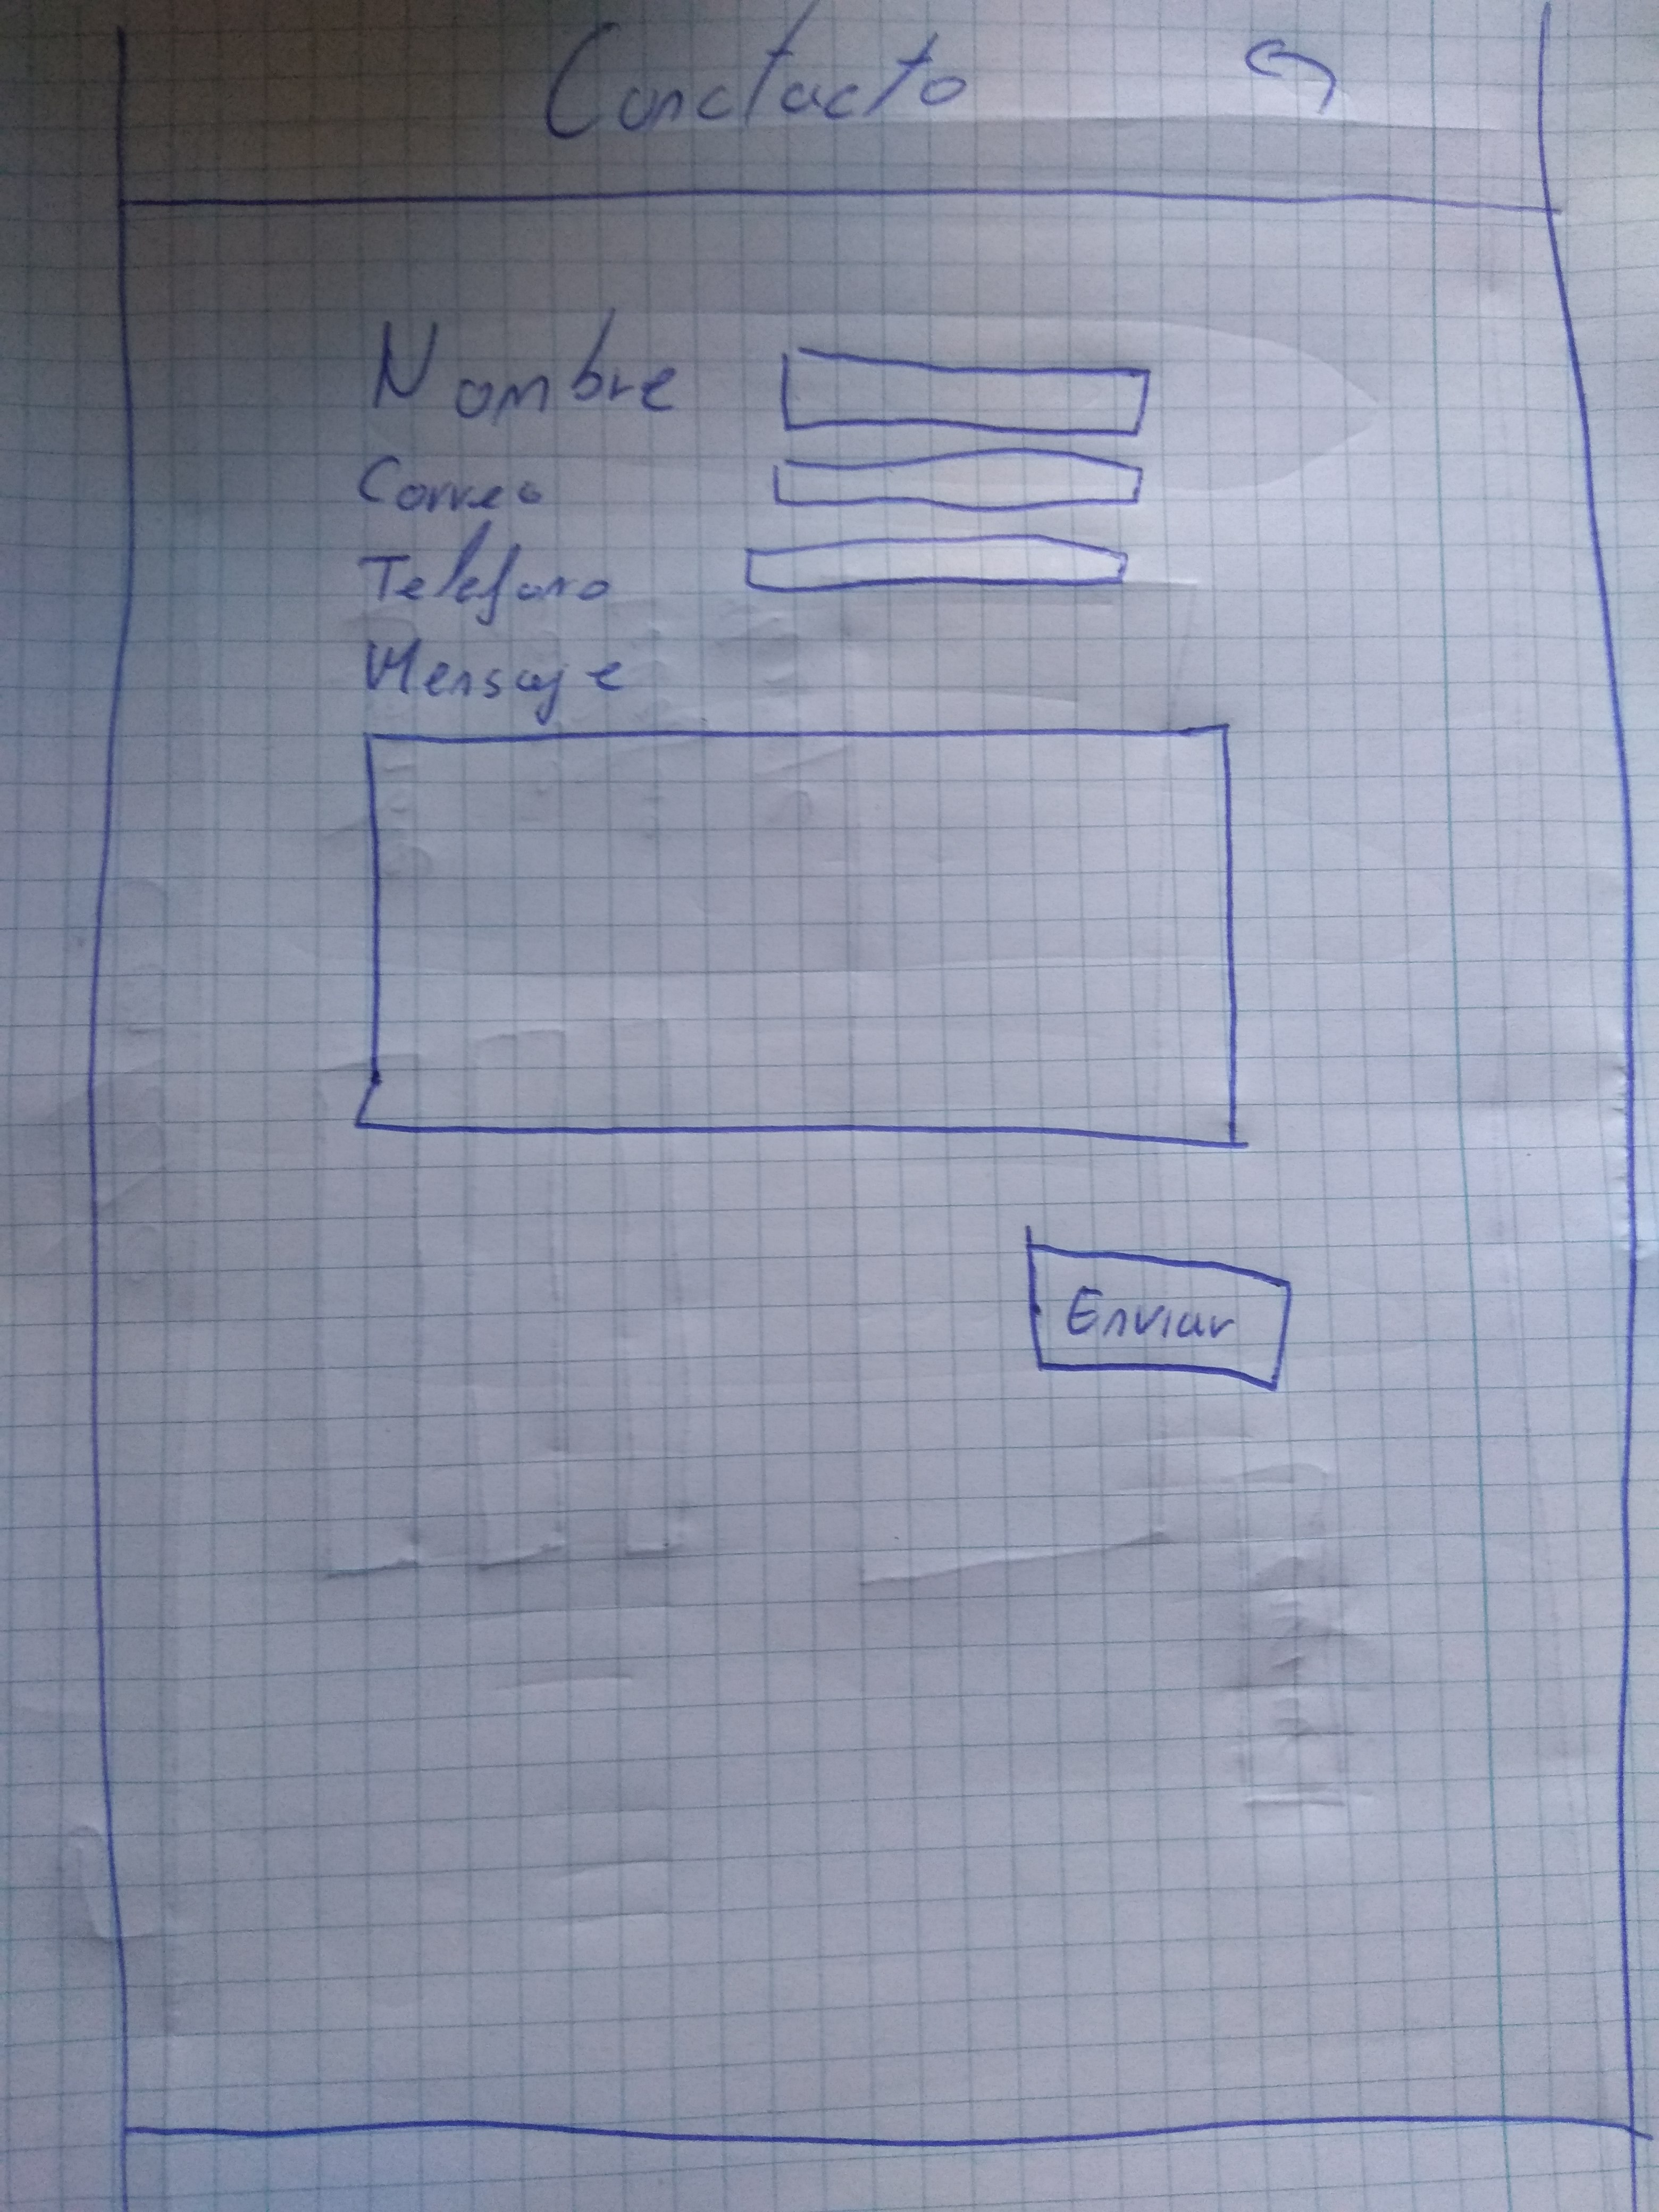 Conctacto
Nombre
Correo
Telefono
Mensaje
Enviar